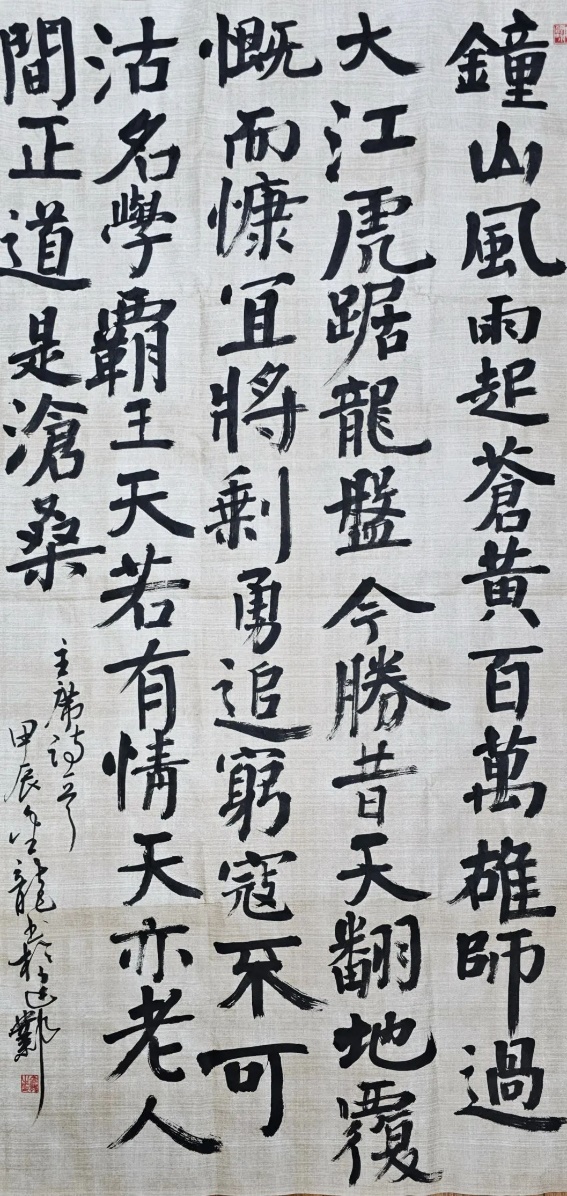 鐘山風雨起蒼黃百萬雄師過
大江虎踞龍盤今勝昔天翻地覆
慨而慷宜將剩勇追窮寇不可
沽名學霸王天若有情天亦老人
間正道是滄桑
主席詩一首
甲辰年